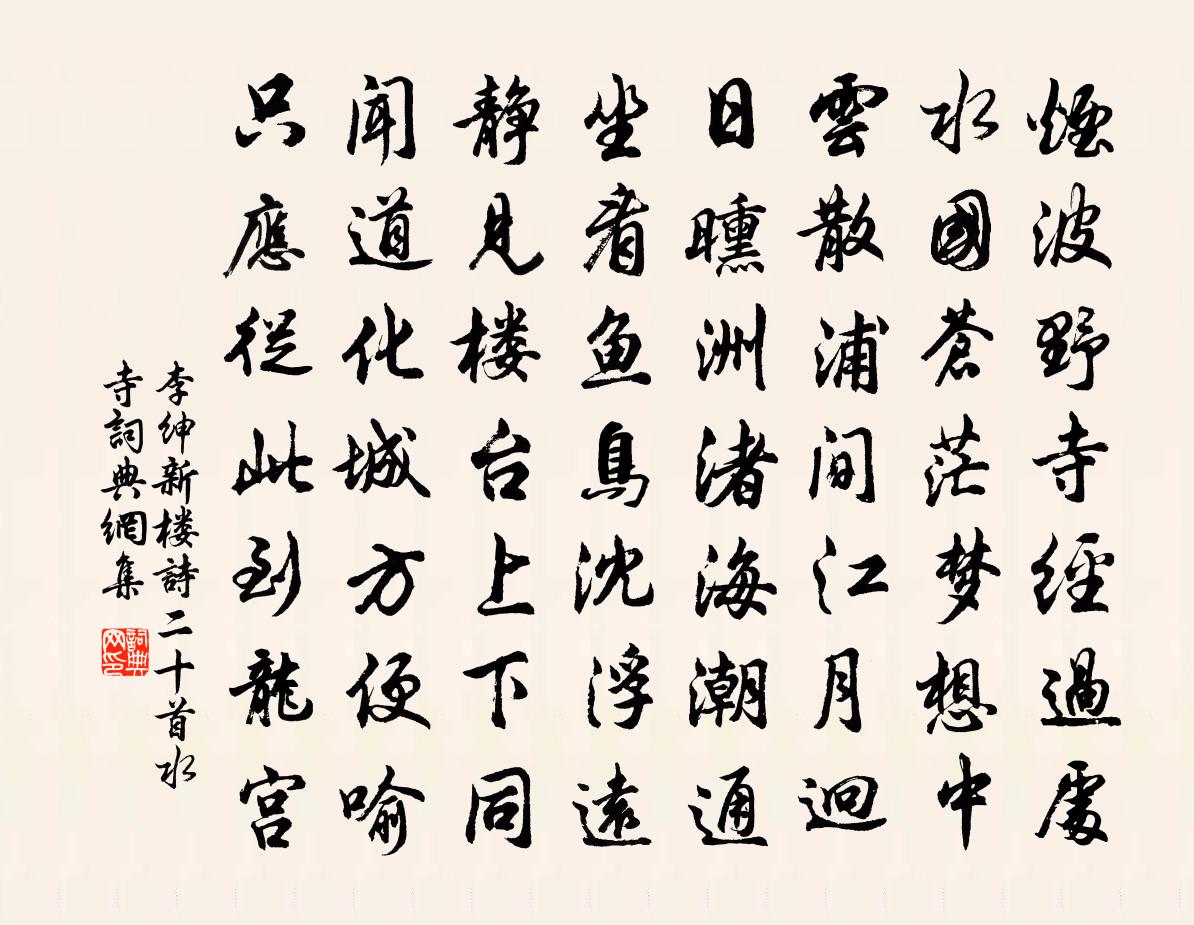 煙波野寺經過處
水國蒼茫梦想中
雲散浦間江月迥
日曛洲渚海潮通
坐看魚鳥沈浮遠
靜見楼台上下同
聞道化城方便喻
只應從此到龍宮
李紳新楼詩二十首水
寺詞典網集
詞典网印